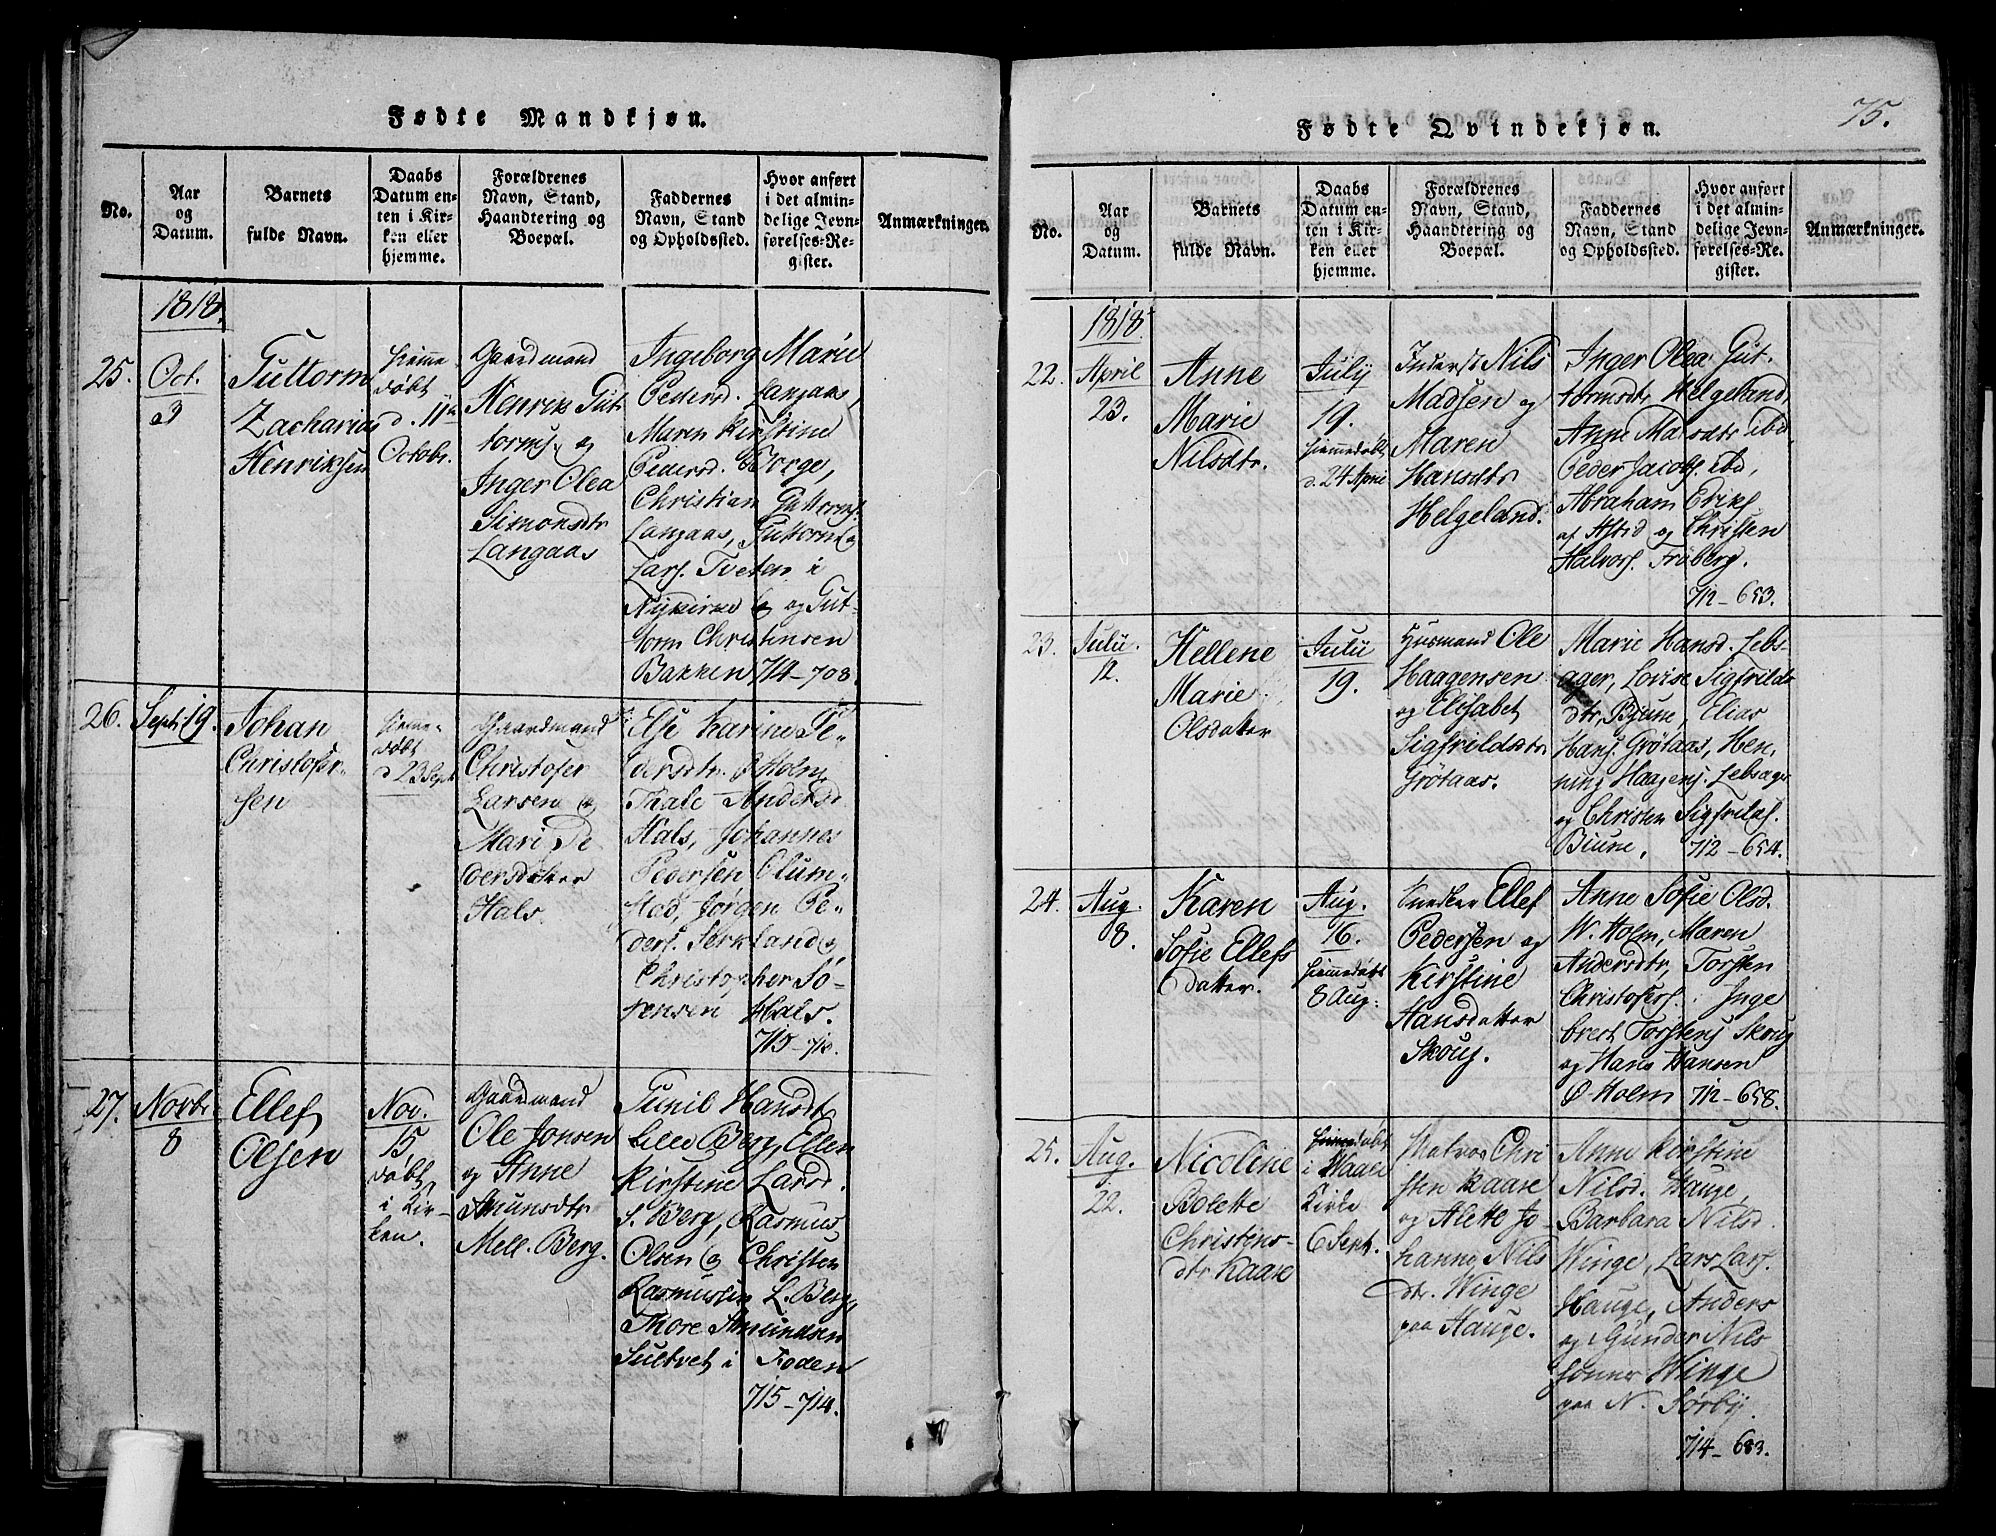 Fødte Mandkjøn.
No.
Aar
og
Datum.
Barnets
fulde Navn.
Daabs
Datum en-
ten i Kir-
ken eller
hjemme.
Forældrenes
Navn, Stand,
Haandtering og
Boepæl.
Faddernes
Navn, Stand
og Opholdssted.
Hvor anført
i det almin-
delige Jevn-
førelses-Re-
gister.
Anmærkninger.
1818.
25.
Oct.
3
Guttorm
Zacharias
Henriksen
Hieme
døbt
d. 11te
Octobr.
Gaardmand
Henrik Gut
torms. og
Inger Olea
Simonsdtr
Langaas
Ingeborg Marie
Pedersd. Langaas,
Maren Kirstine
Pedersd. Borge,
Christian Guttorms.
Langaas, Guttorm
Lars. Tveten i
Nykirke og Gut-
torm Christensen
Bakken 714-708.
26.
Sept. 19.
Johan
Christofer-
sen
Hieme-
døbt
d 23 Sept
Gaardmand
Christofer
Larsen og
Mari Pe
dersdatter
Hals.
Else Karine Pe-
dersdtr. Holm
Thale Andersd.
Hals, Johannes
Pedersen Olum-
stad, Jørgen Pe-
ders. Serkland og
Christopher Sö-
rensen Hals.
715-710.
27.
Novbr.
8
Ellef
Olsen
Nov.
15
døbt
i Kir-
ken.
Gaardmand
Ole Jonsen
og Anne
Amunsdtr
Mell. Berg.
Gunil Hansdt
Lille Berg, Ellen
Kirstine Larsd.
S. Berg, Rasmus
Olsen og Christen
Rasmussen L. Berg,
Thore Amundsen
Sultvet i Foden
715-714.
75.
Fødte Qvindekjøn.
No.
Aar
og
Datum.
Barnets
fulde Navn.
Daabs
Datum en-
ten i Kir-
ken eller
hjemme.
Forældrenes
Navn, Stand,
Haandtering og
Boepæl.
Faddernes
Navn, Stand
og Opholdssted.
Hvor anført
i det almin-
delige Jevn-
førelses-Re-
gister.
Anmærkninger.
1818.
22.
April
23.
Anne
Marie
Nilsdtr.
July
19.
Hiemedøbt
d. 24 April
Inderst Nils
Madsen og
Maren
Hansdtr
Helgeland.
Inger Olea Gut-
tormsdtr Helgeland,
Anne Matsdtr ibd,
Peder Jacobs. ibd,
Abraham Eriks.
af Astid og Christen
Halvors. Fröberg.
712-653.
23.
July
12.
Hellene
Marie
Olsdatter
July
19.
Husmand Ole
Haagensen
og Elisabet
Sigfrildsdtr
Grötaas.
Marie Hansd. Lebs-
ager, Lovise Sigfrilds
dtr, Bjune, Elias
Hans. Grötaas, Hen,
ning Haagens. Lebsager
og Christen Sigfrilds.
Biune, 712-654.
24.
Aug.
8.
Karen
Sofie Ellefs
datter.
Aug.
16.
Hiemedøbt
8 Aug.
Snedker Ellef
Pedersen og
Kirstine
Hansdatter
Skoug.
Anne Sofie Olsd.
W. Holm, Maren
Andersdtr, Torsten
Christofers. Inge
bret Torstens. Skoug
og Hans Hansen
Ø Holm 712-658.
25.
Aug.
22.
Nicoline
Bolette
Christens-
dtr Kaase
i Waase
Kirke
6 Sept.
Matros Chri
sten Kaase
og Alette Jo-
hanne Nils
dtr. Winge
paa Hauge.
Anne Kirstine
Nilsd. Hauge,
Barbara Nilsd.
Winge, Lars Lars.
Hauge, Anders
og Gunder Nils
sönner Winge
paa N. Sörby.
714-683.